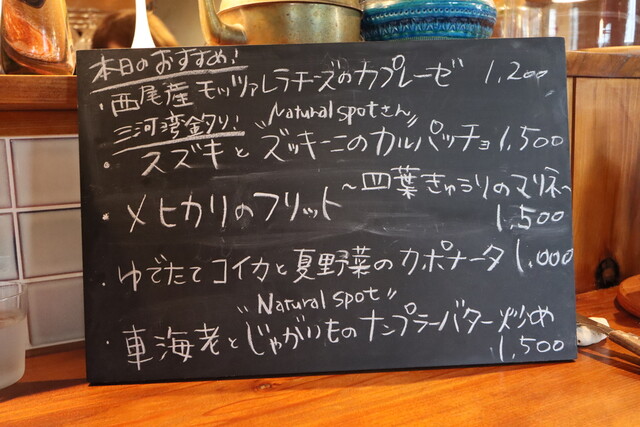 本日のおすすめ!
・西尾産 モッツァレラチーズのカプレーゼ 1,200
三河湾釣り! Natural spotさん
・スズキと"ズッキーニのカルパッチョ 1,500
・メヒカリのフリット ～四葉きゅうりのマリネ～
1,500
・ゆでたてコイカと夏野菜のカポナータ 1,000
"Natural spot"
・車海老とじゃがいものナンプラーバター炒め
1,500